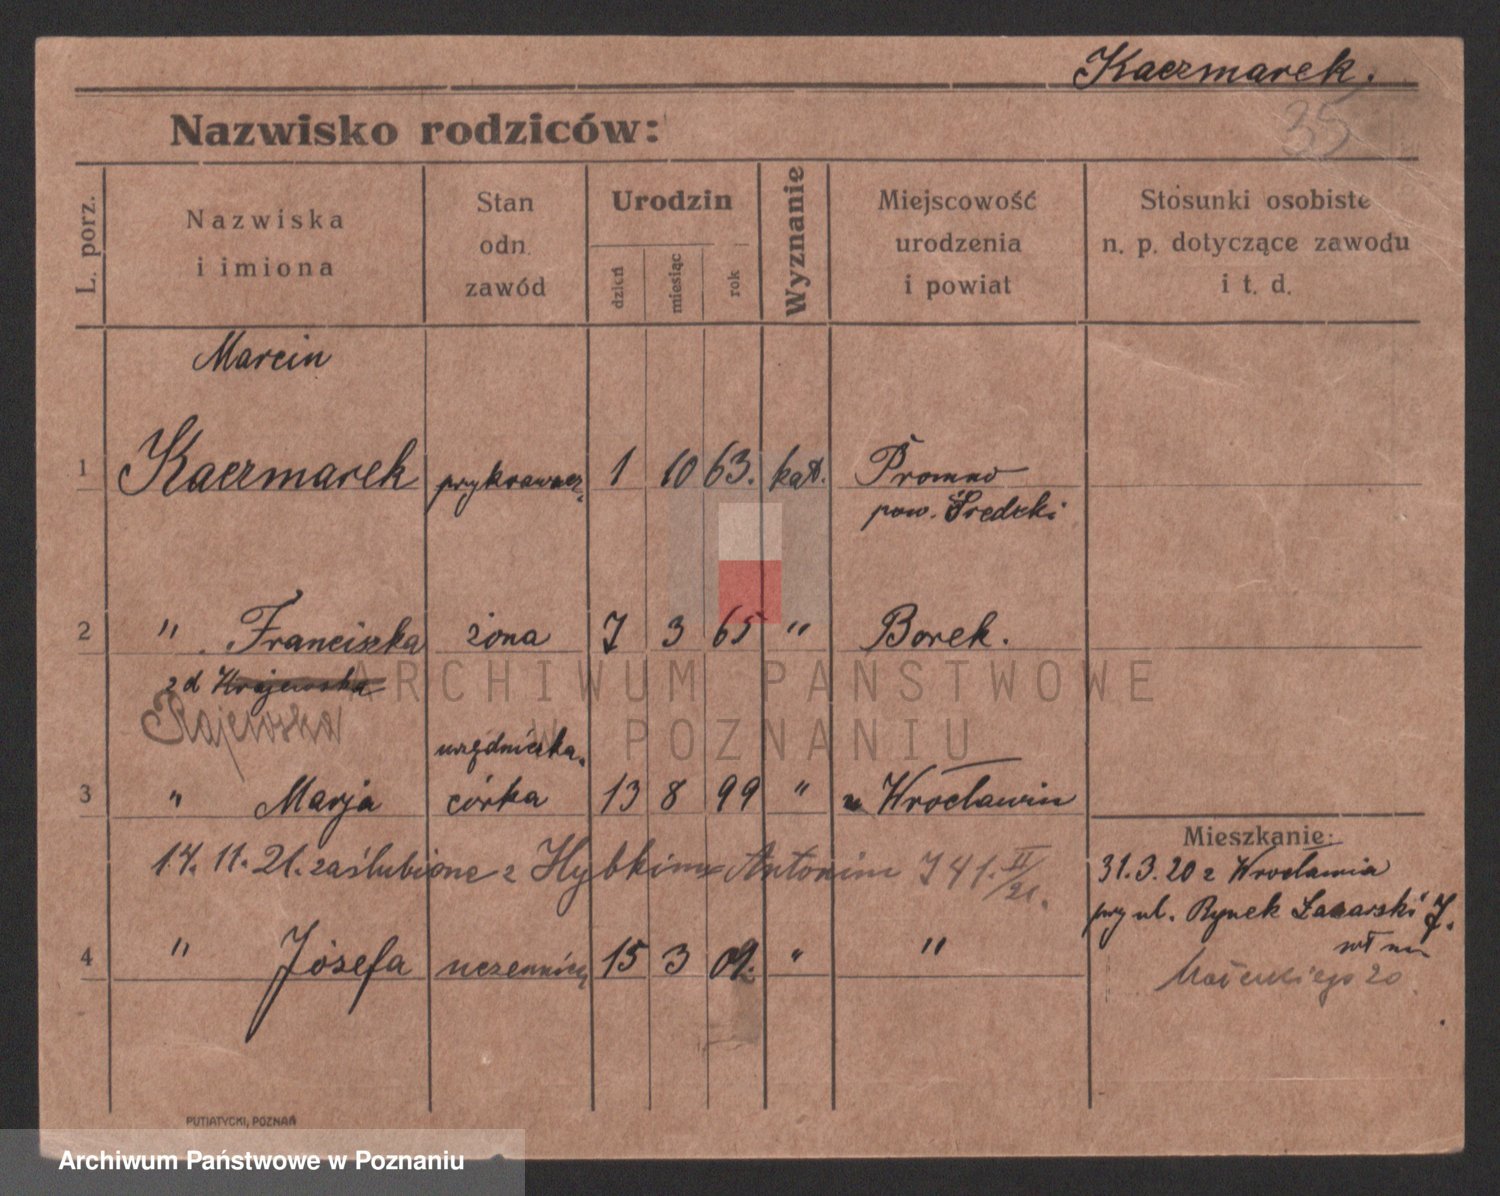 Kaczmarek.
35
Nazwisko rodziców:
L. porz.
Nazwiska
i imiona
Stan
odn.
zawód
Urodzin
dzień
miesiąc
rok
Wyznanie
Miejscowość
urodzenia
i powiat
Stosunki osobiste
n. p. dotyczące zawodu
i t. d.
Marcin
1 Kaczmarek przykrawacz 1 10 63. kat. Promno
pow. Średzki
2 " Franciszka żona 7 3 65 " Borek.
zd Krajewska
Majewska
urzędniczka
3 " Marja córka 13 8 99 " Wrocławiu
14. 11. 21. zaślubione z Antonim 741. II/21.
Mieszkanie:
31.3.20 z Wrocławia
przy ul. Rynek Łazarski 7.
4 " Józefa uczennica 15 3 09. " "
Małeckiego 20
PUTIATYCKI, POZNAŃ
ARCHIWUM PAŃSTWOWE
W POZNANIU
Archiwum Państwowe w Poznaniu